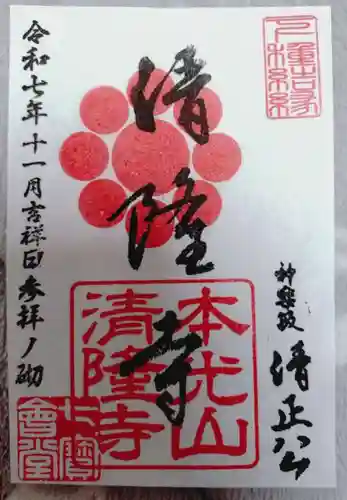 神楽坂 清正公
清隆寺
令和七年十一月吉祥日参拝ノ砌
本光山
清隆寺
七寶
會堂